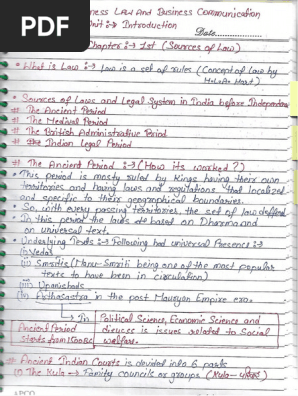 PDF
ness Law And Business Communication
Unit :-> Introduction
Date
Chapter :-> 1st (Sources of Law)
• What is Law :-> Law is a set of rules (Concept of Law by
Hart)
• Sources of Laws and Legal System in India before Independen
# The Ancient Period
# The Medival Period
# The British Administrative Period
# The Indian Legal Period
# The Ancient Period :-> (How its worked ?)
• This period is mostly ruled by Kings having their own
territories and having laws and regulations that localized
and specific to their geographical boundaries.
• So, with every passing territories, the set of law deffered
• In this period the laws are based on Dharma and
on universal text.
• Underlying Texts :-> Following had universal Presence :->
(i) Vedas
(ii) Smritis (Manu-Smriti being one of the most popular
texts to have been in circulation)
(iii) Upanishads
(iv) Arthasastra in the post Mauryan Empire era.
In Political Science, Economic Science and
Ancient Period
starts from 1500BC
dieuces is issues related to Social
welfare.
# Ancient Indian Courts is divided into 6 parts
(i) The Kula -> Family councils or groups (Kula-